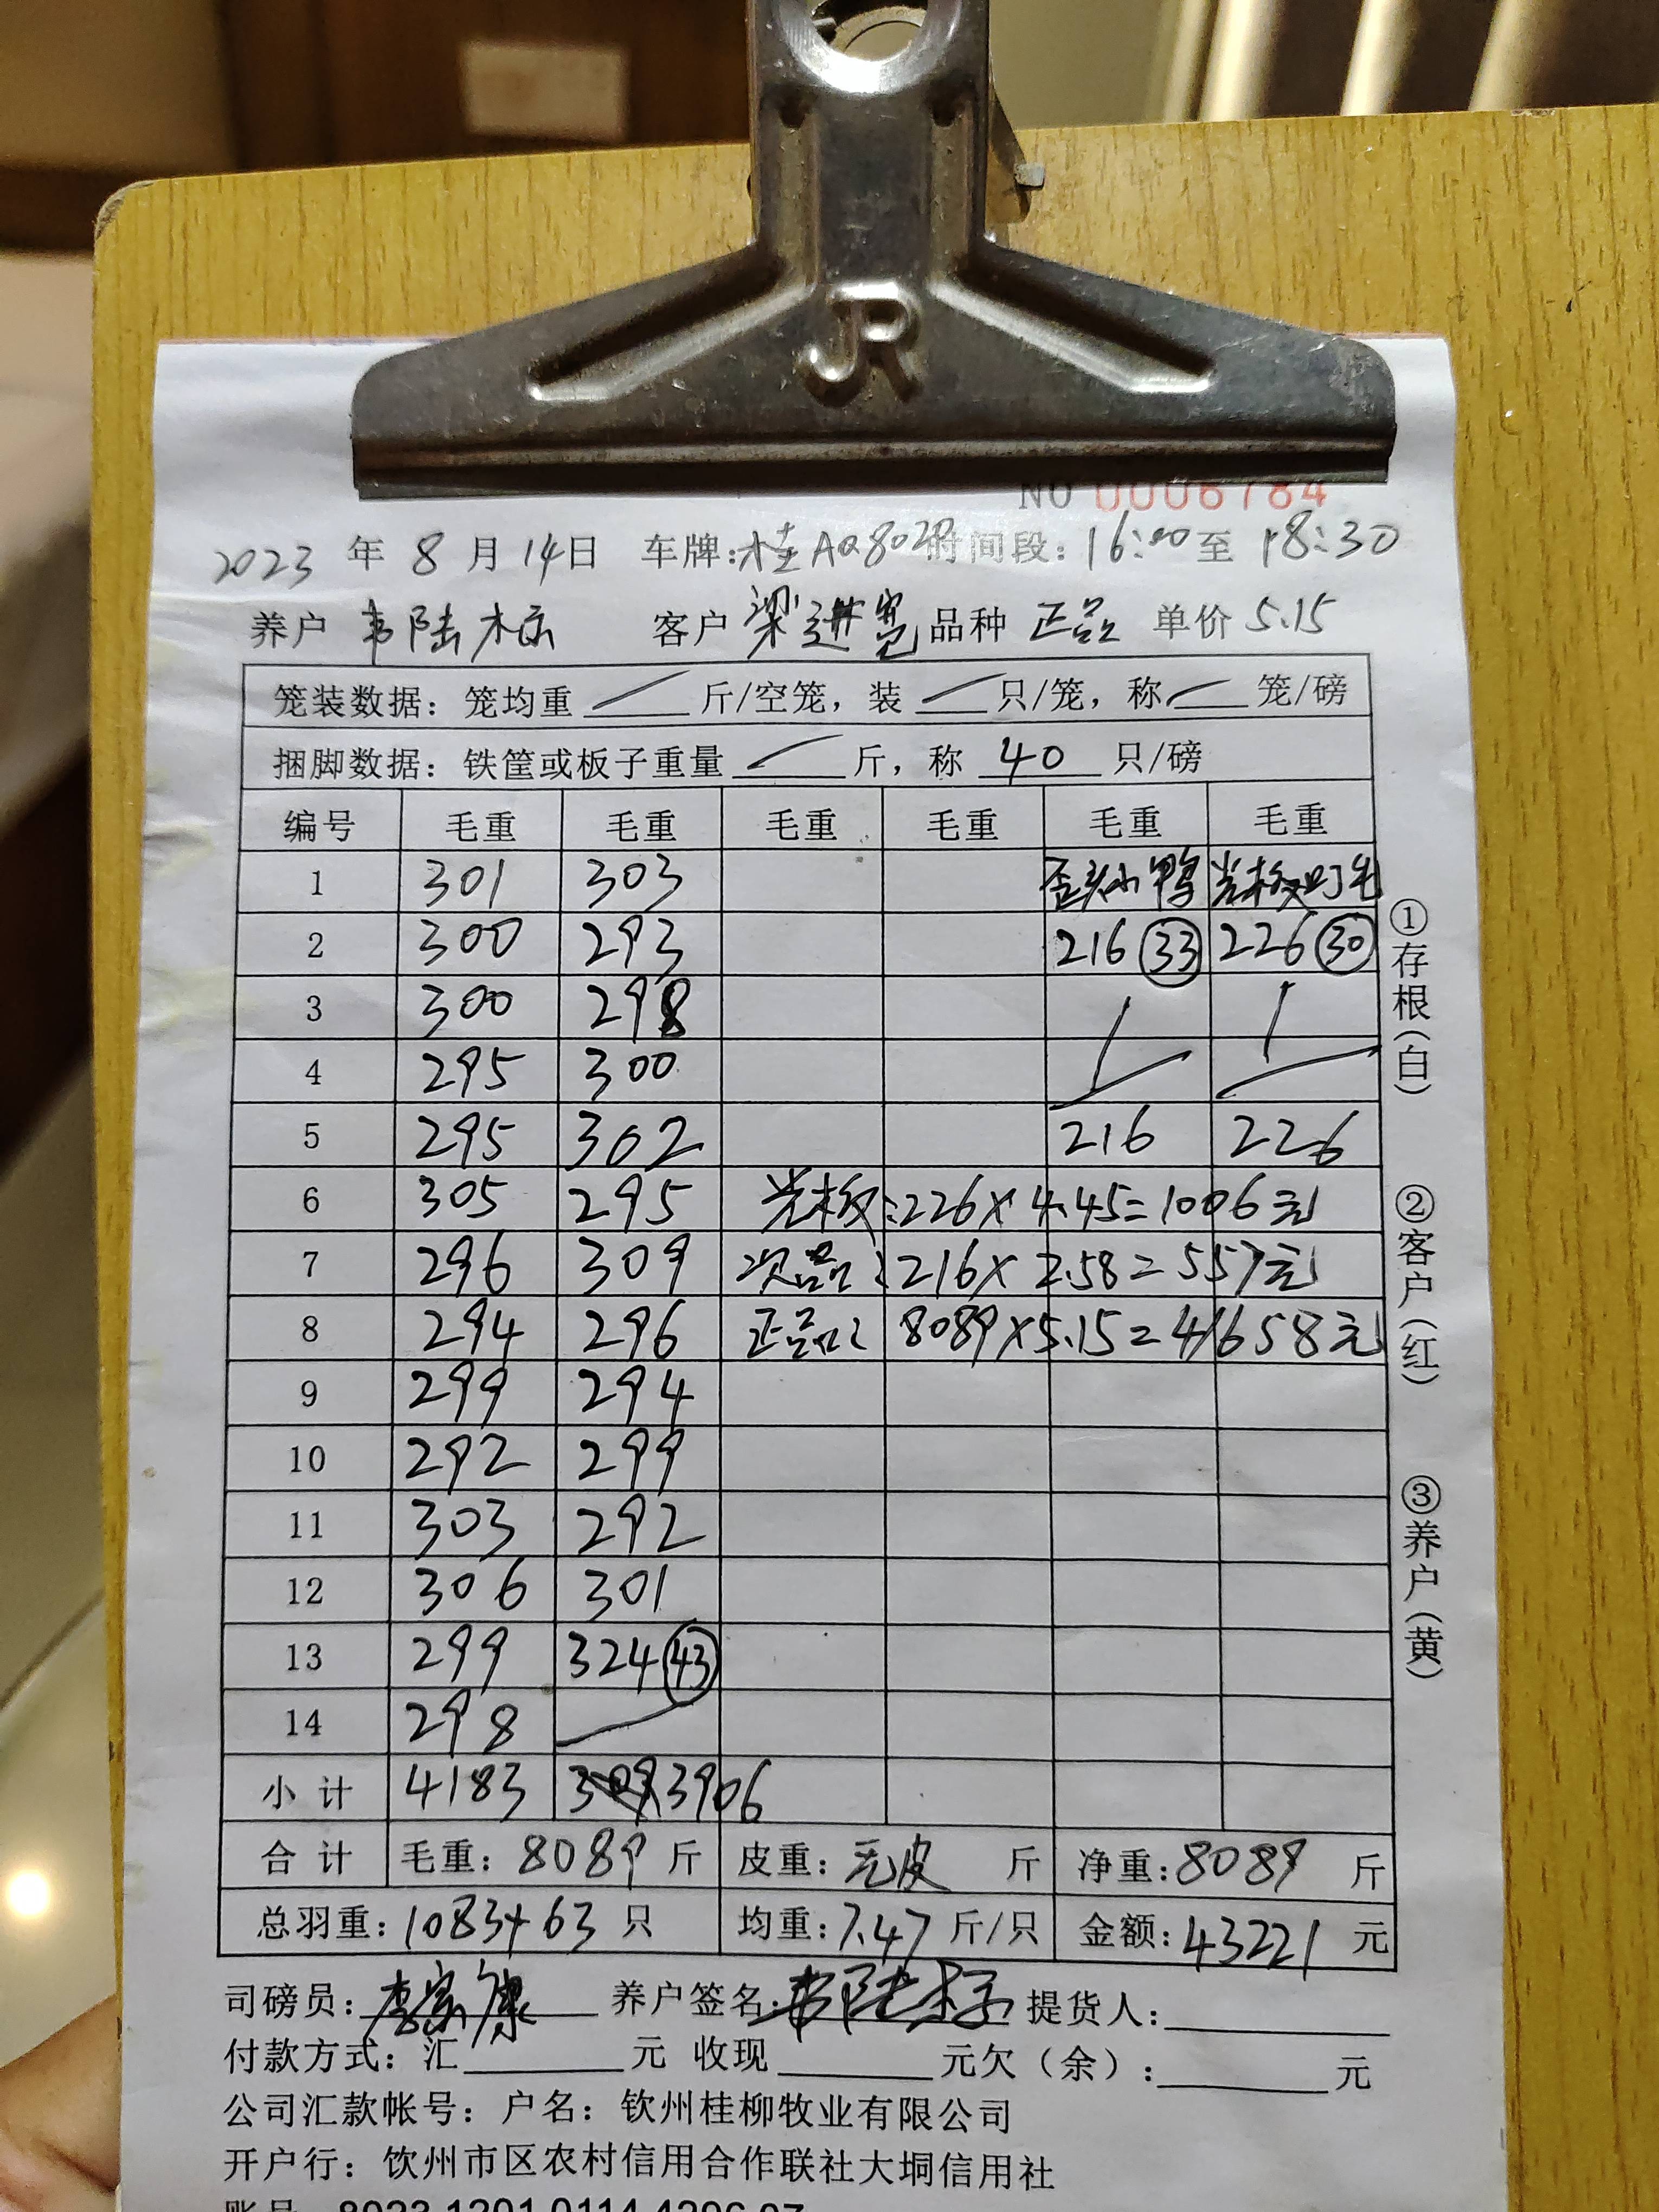 JR
NO 0006784
2023 年 8 月 14 日 车牌: 桂A 时间段: 16:00 至 18:30
养户 韦陆标 客户 梁进宽 品种 正品 单价 5.15
笼装数据: 笼均重 斤/空笼, 装 只/笼, 称 笼/磅
捆脚数据: 铁筐或板子重量 斤, 称 40 只/磅
编号 毛重 毛重 毛重 毛重 毛重 毛重
1 301 303 歪头小鸭 光板叮毛
2 300 293 216 33 226 30
3 300 298
4 295 300
5 295 302 216 226
6 305 295 光板: 226×4.45=1006元
7 296 309 次品: 216×2.58=557元
8 294 296 正品: 8089×5.15=41658元
9 299 294
10 292 299
11 303 292
12 306 301
13 299 324 43
14 298
小计 4183 3906
合计 毛重: 8089 斤 皮重: 无皮 斤 净重: 8089 斤
总羽重: 1083+63 只 均重: 7.47 斤/只 金额: 43221 元
司磅员: 李家康 养户签名: 韦陆标 提货人:
付款方式: 汇 元 收现 元欠(余): 元
公司汇款帐号: 户名: 钦州桂柳牧业有限公司
开户行: 钦州市区农村信用合作联社大垌信用社
①存根(白)
②客户(红)
③养户(黄)